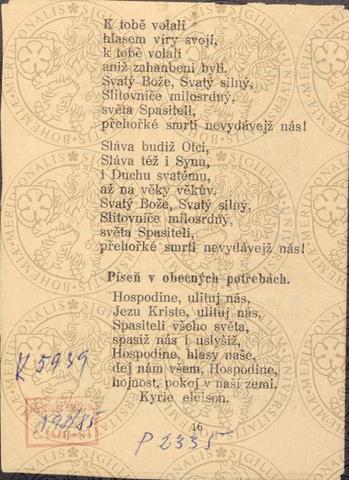 K tobě volali
hlasem víry svojí,
k tobě volali
aniž zahanbeni byli.
Svatý Bože, Svatý silný,
Slitovníče milosrdný,
světa Spasiteli,
přehořké smrti nevydávejž nás!
Sláva budiž Otci,
Sláva též i Synu,
i Duchu svatému,
až na věky věkův.
Svatý Bože, Svatý silný,
Slitovníče milosrdný,
světa Spasiteli,
přehořké smrti nevydávejž nás!
Píseň v obecných potřebách.
Hospodine, ulituj nás,
Jezu Kriste, ulituj nás,
Spasiteli všeho světa,
spasiž nás i uslyšiž,
Hospodine, hlasy naše,
dej nám všem, Hospodine,
hojnost, pokoj v naší zemi.
Kyrie eleison.
K 5939
16
P 2335